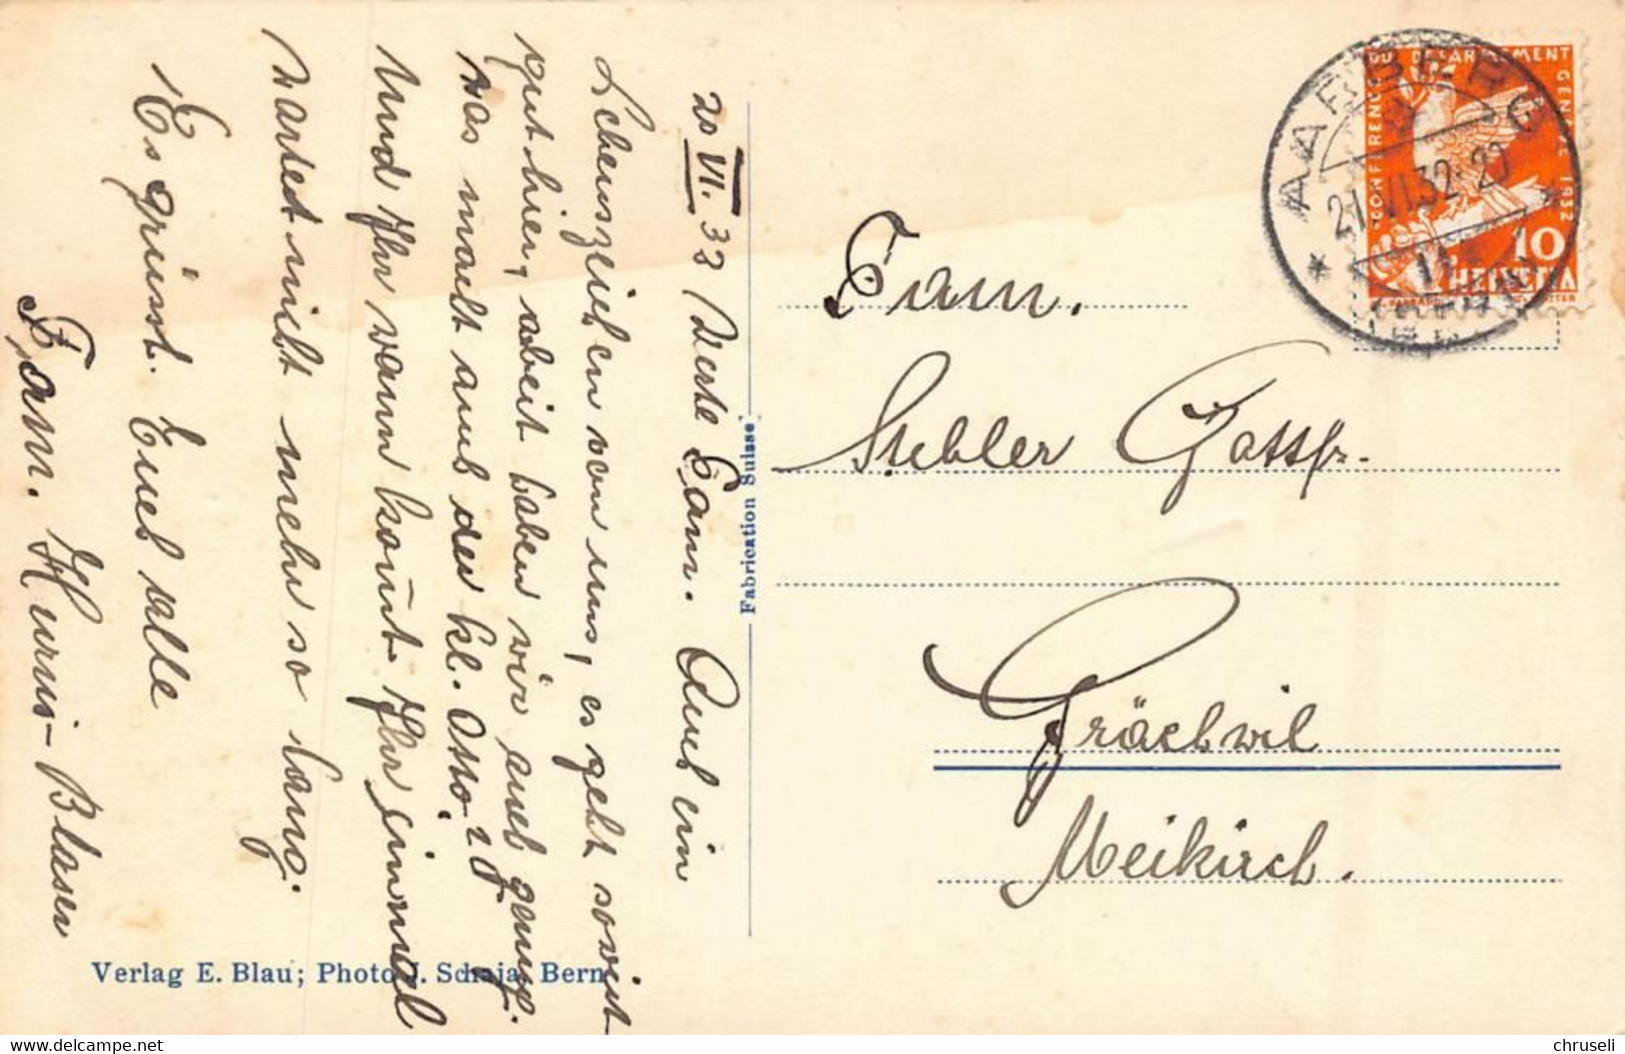 20 VI. 33 Werte Fam. Auch ein
Lebenszeichen von uns, es geht soweit
gut hier, abeit haben wir auch genug.
was macht auch der kl. Otto?
Und Ihr wann komt Ihr einmal
wartet nicht mehr so lang.
Es grüsst. Euch alle
Fam. Hurni-Blaser
Verlag E. Blau; Photo J. Schaja, Bern
Fabrication Suisse
AARBERG
21.VI.32-20
CONFERENCE DU DESARMEMENT GENEVE 1932
10
HELVETIA
Fam.
Stebler
Grächwil
Meikirch.
delcampe.net
chruseli